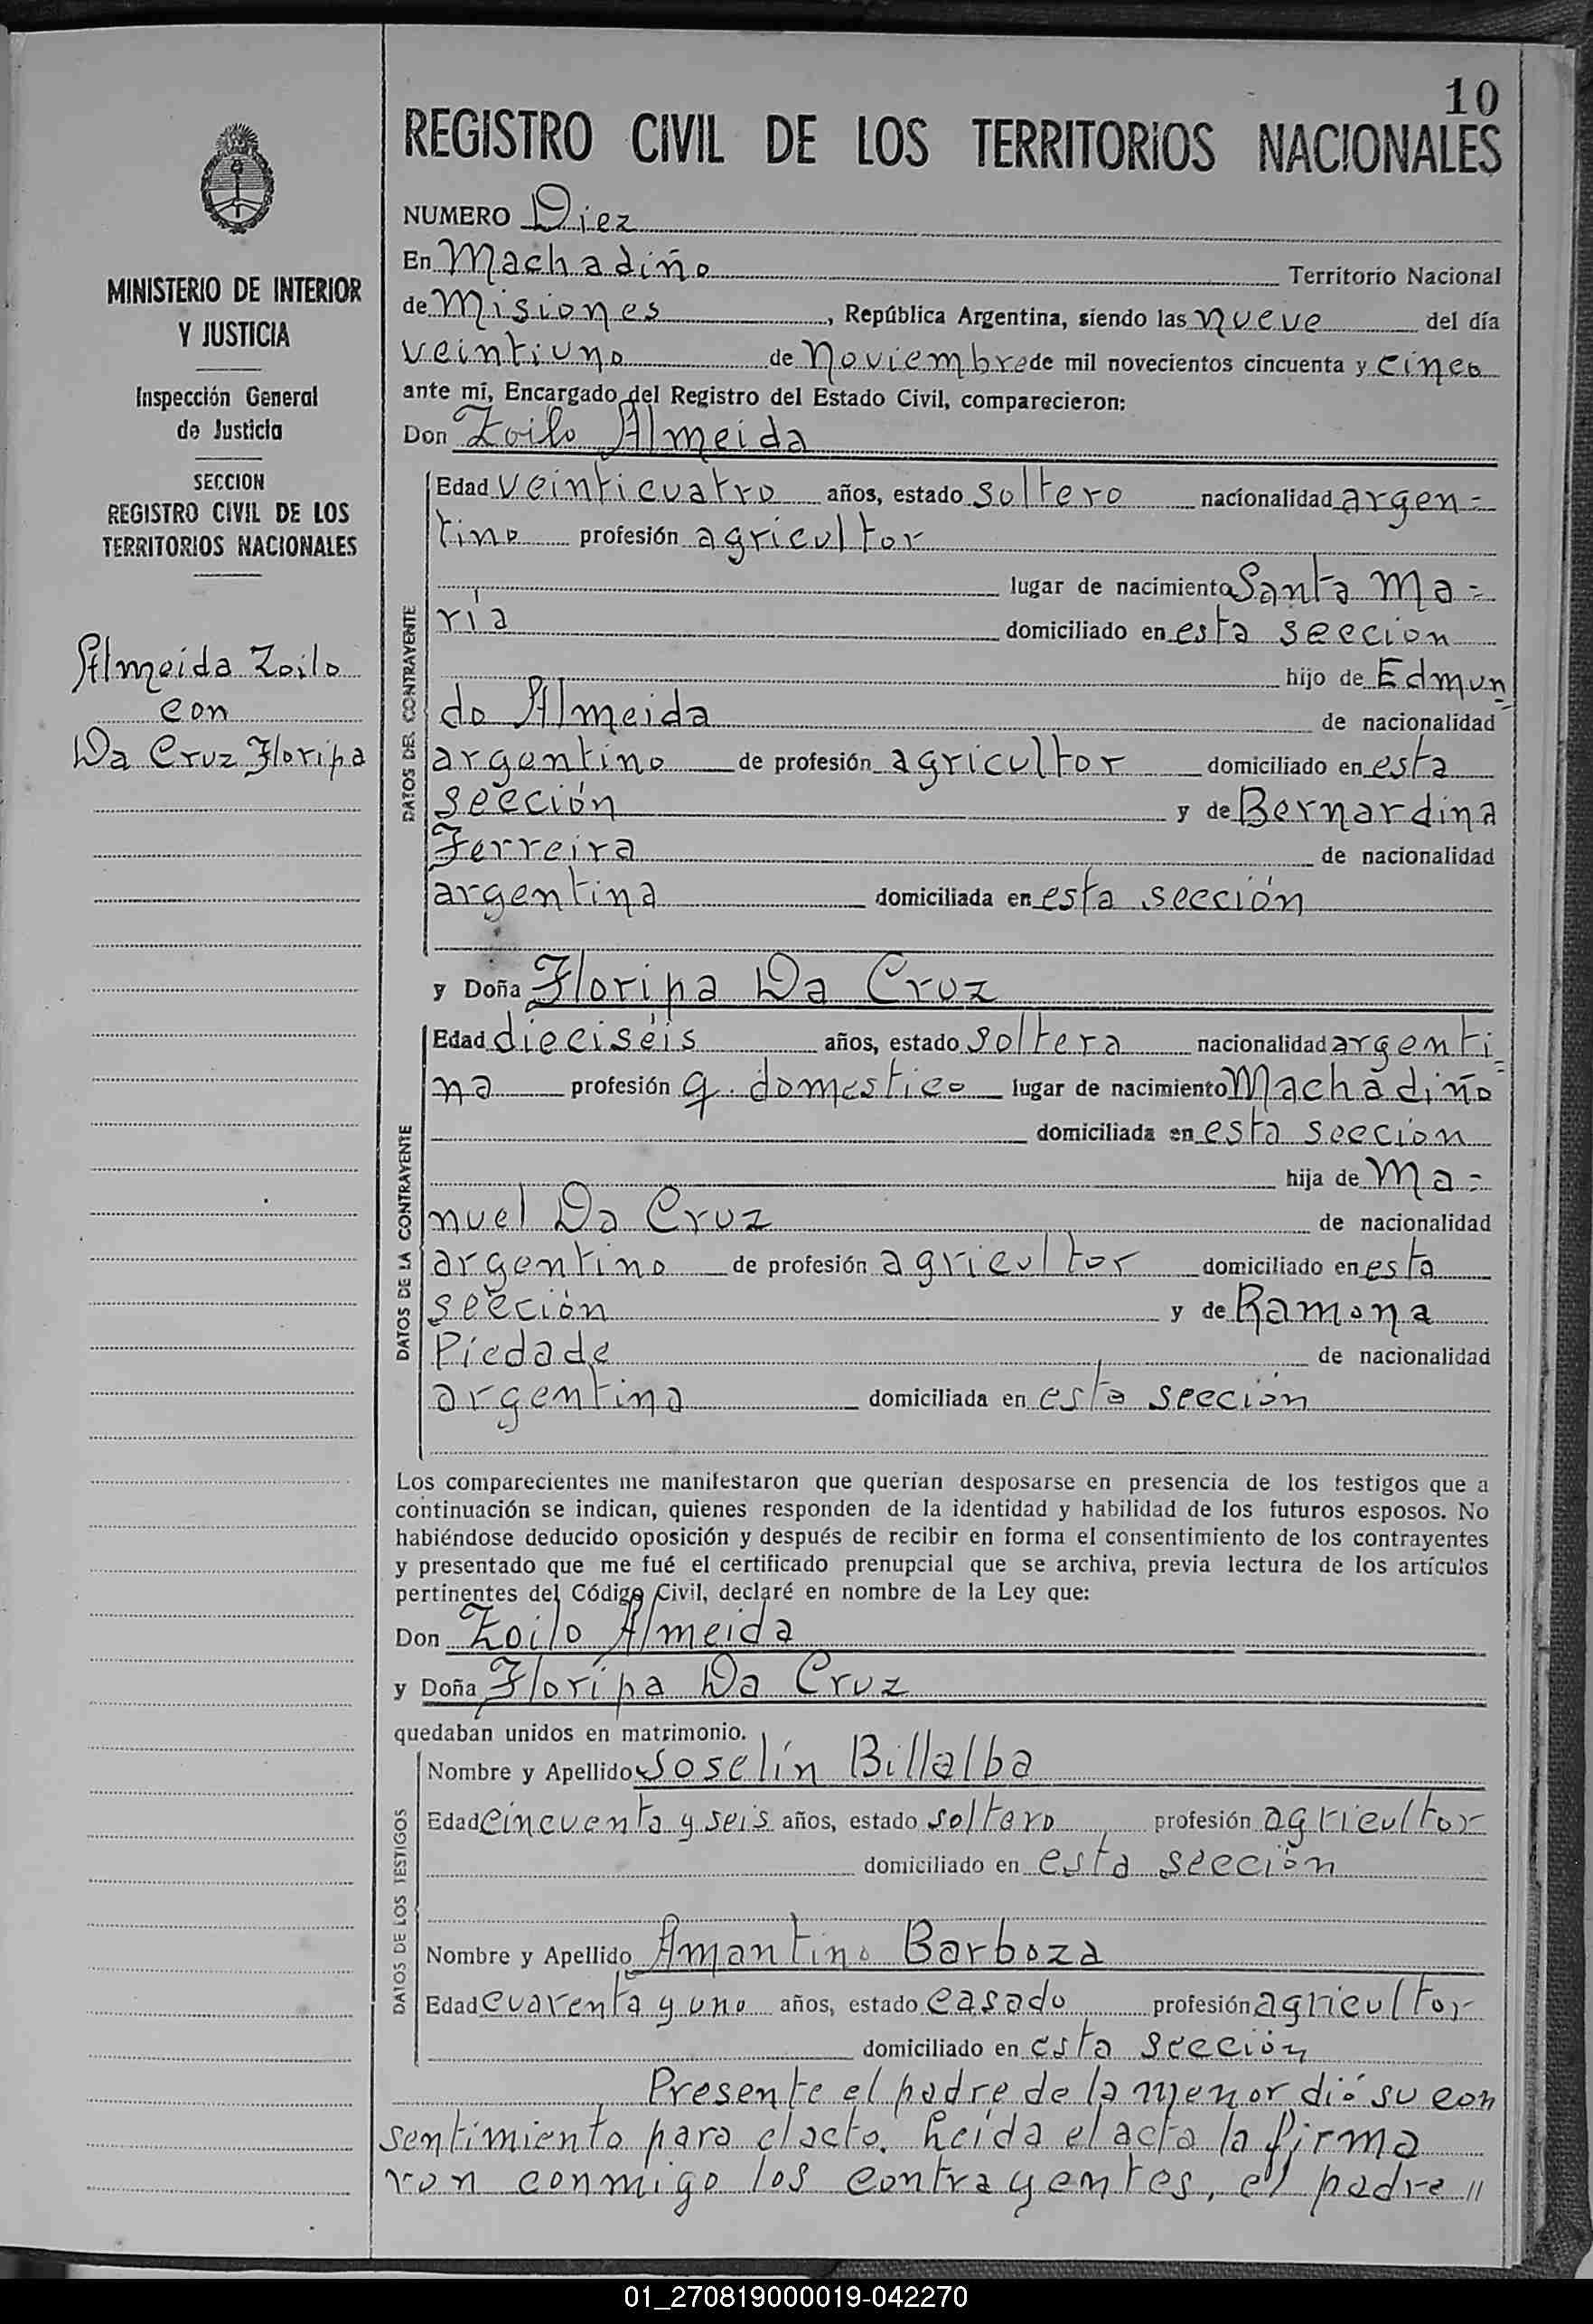 10
REGISTRO CIVIL DE LOS TERRITORIOS NACIONALES
MINISTERIO DE INTERIOR
Y JUSTICIA
Inspección General
de Justicia
SECCION
REGISTRO CIVIL DE LOS
TERRITORIOS NACIONALES
Almeida Zoilo
con
Da Cruz Floripa
NUMERO Diez
En Machadiño Territorio Nacional
de Misiones, República Argentina, siendo las nueve del día
veintiuno de Noviembre de mil novecientos cincuenta y cinco
ante mí, Encargado del Registro del Estado Civil, comparecieron:
Don Zoilo Almeida
DATOS DEL CONTRAYENTE
Edad veinticuatro años, estado soltero nacionalidad argen=
tino profesión agricultor
lugar de nacimiento Santa Ma=
ría domiciliado en esta seccion
hijo de Edmun=
do Almeida de nacionalidad
argentino de profesión agricultor domiciliado en esta
sección y de Bernardina
Ferreira de nacionalidad
argentina domiciliada en esta sección
y Doña Floripa Da Cruz
DATOS DE LA CONTRAYENTE
Edad dieciséis años, estado soltera nacionalidad argenti=
na profesión q. domestico lugar de nacimiento Machadiño
domiciliada en esta seccion
hija de Ma=
nuel Da Cruz de nacionalidad
argentino de profesión agricultor domiciliado en esta
sección y de Ramona
Piedade de nacionalidad
argentina domiciliada en esta sección
Los comparecientes me manifestaron que querían desposarse en presencia de los testigos que a
continuación se indican, quienes responden de la identidad y habilidad de los futuros esposos. No
habiéndose deducido oposición y después de recibir en forma el consentimiento de los contrayentes
y presentado que me fué el certificado prenupcial que se archiva, previa lectura de los artículos
pertinentes del Código Civil, declaré en nombre de la Ley que:
Don Zoilo Almeida
y Doña Floripa Da Cruz
quedaban unidos en matrimonio.
DATOS DE LOS TESTIGOS
Nombre y Apellido Joselín Billalba
Edad cincuenta y seis años, estado soltero profesión agricultor
domiciliado en esta sección
Nombre y Apellido Amantino Barboza
Edad cuarenta y uno años, estado casado profesión agricultor
domiciliado en esta sección
Presente el padre de la menor dió su con
sentimiento para el acto. Leída el acta la firma
ron conmigo los contrayentes, el padre //
01_270819000019-042270